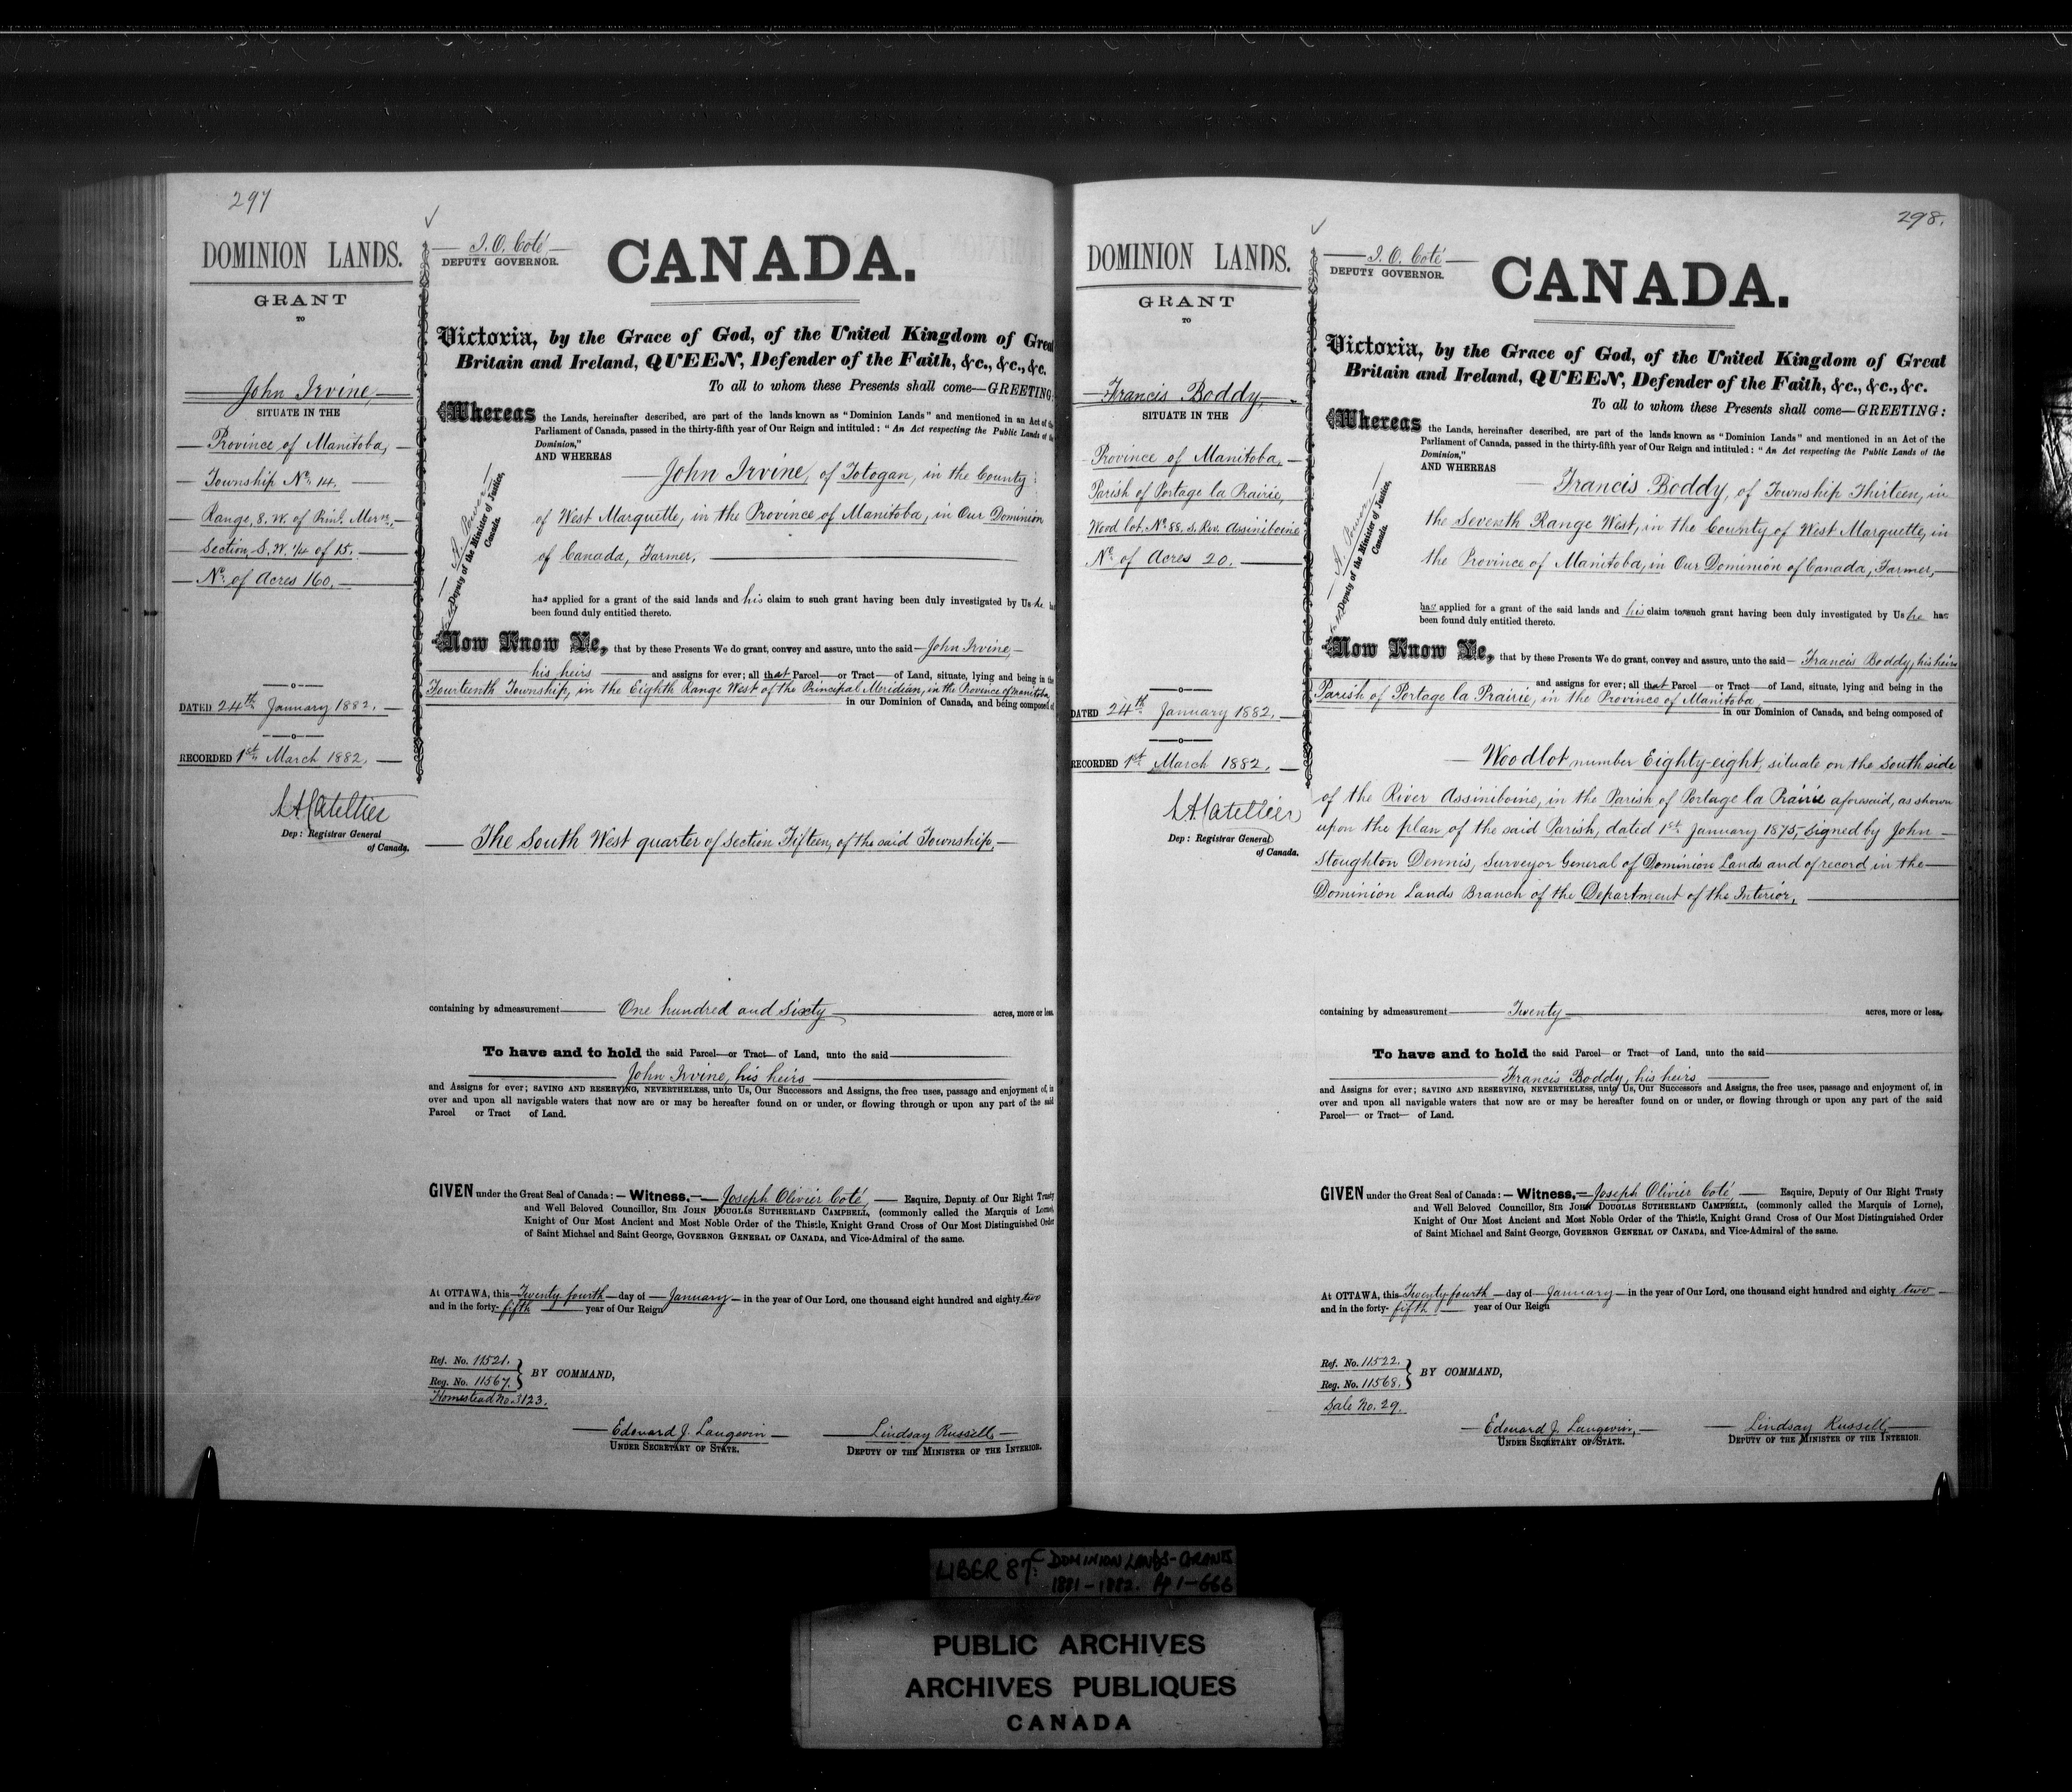 297
DOMINION LANDS.
GRANT
TO
John Irvine,
SITUATE IN THE
Province of Manitoba,
Township No. 14.
Range, 8. W. of Prinl. Mern.
Section, S. W. 1/4 of 15.
No. of Acres 160.
DATED 24th January 1882.
RECORDED 1st March 1882.
Dep: Registrar General
of Canada.
J. O. Coté
DEPUTY GOVERNOR.
CANADA.
Victoria, by the Grace of God, of the United Kingdom of Great
Britain and Ireland, QUEEN, Defender of the Faith, &c., &c., &c.
To all to whom these Presents shall come—GREETING:
Whereas the Lands, hereinafter described, are part of the lands known as "Dominion Lands" and mentioned in an Act of the
Parliament of Canada, passed in the thirty-fifth year of Our Reign and intituled: "An Act respecting the Public Lands of the
Dominion,"
AND WHEREAS
John Irvine, of Totogan, in the County
of West Marquette, in the Province of Manitoba, in Our Dominion
of Canada, Farmer,
A. Power
Deputy of the Minister of Justice,
Canada.
has applied for a grant of the said lands and his claim to such grant having been duly investigated by Us he has
been found duly entitled thereto.
Now Know Ye, that by these Presents We do grant, convey and assure, unto the said John Irvine,
his heirs and assigns for ever; all that Parcel or Tract of Land, situate, lying and being in the
Fourteenth Township, in the Eighth Range West of the Principal Meridian, in the Province of Manitoba,
in our Dominion of Canada, and being composed of
The South West quarter of Section Fifteen, of the said Township,
containing by admeasurement One hundred and Sixty acres, more or less.
To have and to hold the said Parcel or Tract of Land, unto the said
John Irvine, his heirs
and Assigns for ever; SAVING AND RESERVING, NEVERTHELESS, unto Us, Our Successors and Assigns, the free uses, passage and enjoyment of, in
over and upon all navigable waters that now are or may be hereafter found on or under, or flowing through or upon any part of the said
Parcel or Tract of Land.
GIVEN under the Great Seal of Canada:—Witness, Joseph Olivier Coté, Esquire, Deputy of Our Right Trusty
and Well Beloved Councillor, SIR JOHN DOUGLAS SUTHERLAND CAMPBELL, (commonly called the Marquis of Lorne),
Knight of Our Most Ancient and Most Noble Order of the Thistle, Knight Grand Cross of Our Most Distinguished Order
of Saint Michael and Saint George, GOVERNOR GENERAL OF CANADA, and Vice-Admiral of the same.
At OTTAWA, this Twenty fourth day of January in the year of Our Lord, one thousand eight hundred and eighty two
and in the forty-fifth year of Our Reign
Ref. No. 11521.
Reg. No. 11567.
BY COMMAND,
Homestead No. 3123.
Edouard J. Langevin
UNDER SECRETARY OF STATE.
Lindsay Russell
DEPUTY OF THE MINISTER OF THE INTERIOR.
298.
DOMINION LANDS.
GRANT
TO
Francis Boddy,
SITUATE IN THE
Province of Manitoba,
Parish of Portage la Prairie,
Wood lot No. 88. S. Riv. Assiniboine
No. of Acres 20.
DATED 24th January 1882.
RECORDED 1st March 1882.
Dep: Registrar General
of Canada.
J. O. Coté
DEPUTY GOVERNOR.
CANADA.
Victoria, by the Grace of God, of the United Kingdom of Great
Britain and Ireland, QUEEN, Defender of the Faith, &c., &c., &c.
To all to whom these Presents shall come—GREETING:
Whereas the Lands, hereinafter described, are part of the lands known as "Dominion Lands" and mentioned in an Act of the
Parliament of Canada, passed in the thirty-fifth year of Our Reign and intituled: "An Act respecting the Public Lands of the
Dominion,"
AND WHEREAS
Francis Boddy, of Township Thirteen, in
the Seventh Range West, in the County of West Marquette, in
the Province of Manitoba, in Our Dominion of Canada, Farmer,
A. Power
Deputy of the Minister of Justice,
Canada.
has applied for a grant of the said lands and his claim to such grant having been duly investigated by Us he has
been found duly entitled thereto.
Now Know Ye, that by these Presents We do grant, convey and assure, unto the said Francis Boddy, his heirs
and assigns for ever; all that Parcel or Tract of Land, situate, lying and being in the
Parish of Portage la Prairie, in the Province of Manitoba
in our Dominion of Canada, and being composed of
Woodlot number Eighty-eight, situate on the South side
of the River Assiniboine, in the Parish of Portage la Prairie aforesaid, as shown
upon the plan of the said Parish, dated 1st January 1875, signed by John
Stoughton Dennis, Surveyor General of Dominion Lands and of record in the
Dominion Lands Branch of the Department of the Interior,
containing by admeasurement Twenty acres, more or less.
To have and to hold the said Parcel or Tract of Land, unto the said
Francis Boddy, his heirs
and Assigns for ever; SAVING AND RESERVING, NEVERTHELESS, unto Us, Our Successors and Assigns, the free uses, passage and enjoyment of, in
over and upon all navigable waters that now are or may be hereafter found on or under, or flowing through or upon any part of the said
Parcel or Tract of Land.
GIVEN under the Great Seal of Canada:—Witness, Joseph Olivier Coté, Esquire, Deputy of Our Right Trusty
and Well Beloved Councillor, SIR JOHN DOUGLAS SUTHERLAND CAMPBELL, (commonly called the Marquis of Lorne),
Knight of Our Most Ancient and Most Noble Order of the Thistle, Knight Grand Cross of Our Most Distinguished Order
of Saint Michael and Saint George, GOVERNOR GENERAL OF CANADA, and Vice-Admiral of the same.
At OTTAWA, this Twenty fourth day of January in the year of Our Lord, one thousand eight hundred and eighty two
and in the forty-fifth year of Our Reign
Ref. No. 11522.
Reg. No. 11568.
BY COMMAND,
Sale No. 29.
Edouard J. Langevin,
UNDER SECRETARY OF STATE.
Lindsay Russell
DEPUTY OF THE MINISTER OF THE INTERIOR.
LIBER 87C: DOMINION LANDS-GRANTS
1881-1882. Pp 1-666
PUBLIC ARCHIVES
ARCHIVES PUBLIQUES
CANADA